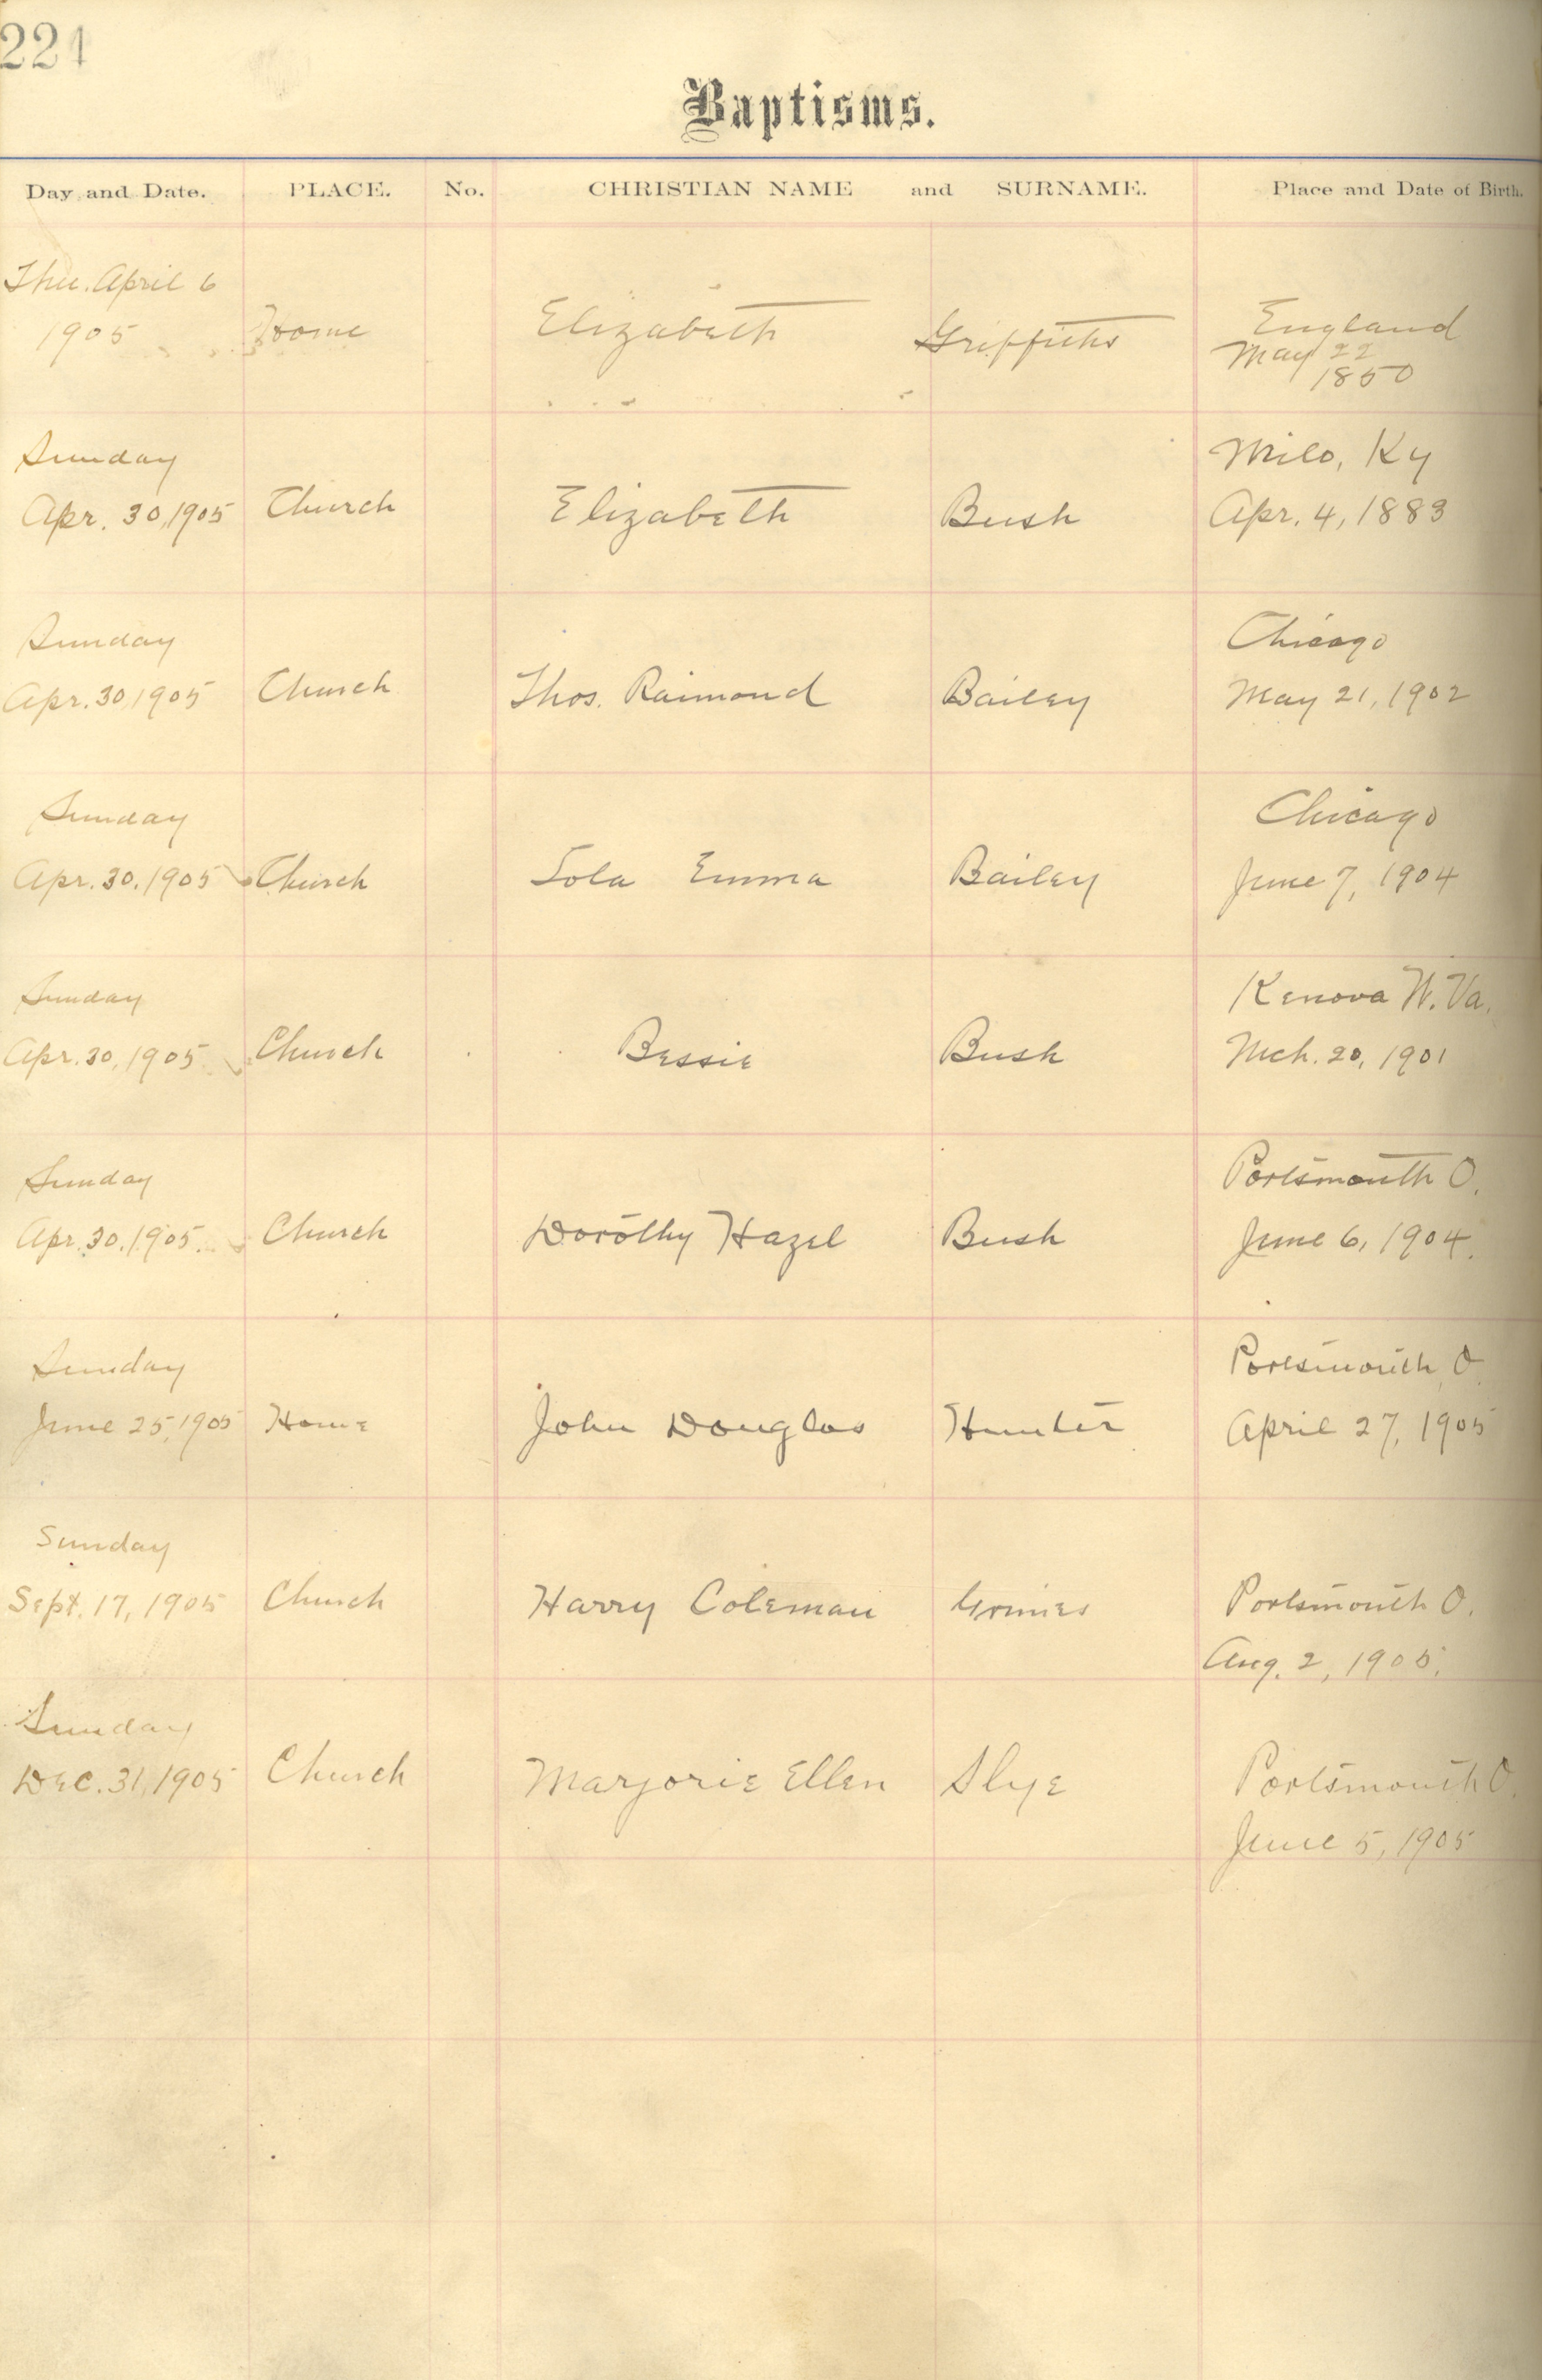 224
Baptisms.
Day and Date. PLACE. No. CHRISTIAN NAME and SURNAME. Place and Date of Birth.
Thu. April 6
1905 Home Elizabeth Griffiths England
May 22
1850
Sunday Milo, Ky
Apr. 30, 1905 Church Elizabeth Bush Apr. 4, 1883
Sunday Chicago
Apr. 30, 1905 Church Thos. Raimond Bailey May 21, 1902
Sunday Chicago
Apr. 30, 1905 Church Lola Emma Bailey June 7, 1904
Sunday Kenova W. Va.
Apr. 30, 1905 Church Bessie Bush Mch. 20, 1901
Sunday Portsmouth O.
Apr. 30, 1905. Church Dorothy Hazel Bush June 6, 1904.
Sunday Portsmouth, O
June 25, 1905 Home John Douglas Hunter April 27, 1905
Sunday
Sept. 17, 1905 Church Harry Coleman Grimes Portsmouth O.
Aug. 2, 1905.
Sunday
Dec. 31, 1905 Church Marjorie Ellen Slye Portsmouth O.
June 5, 1905